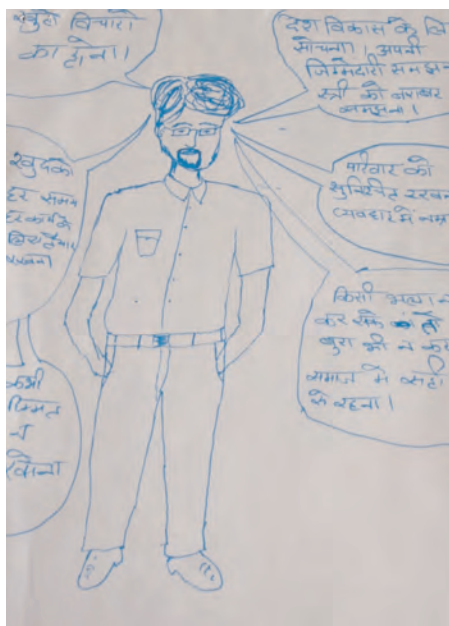 खुले विचारो
का होना।
देश विकास के लि
सोचना। अपनी
जिम्मेदारी समझन
स्त्री को बराबर
समझना।
खुदको
हर समय
हर कार्य के
लिए तैयार
रखना।
परिवार को
सुरक्षित रखन
व्यवहार में नम्र
किसी भला न
कर सके तो
बुरा भी न कर
समाज मे सही
से रहना।
कभी
हिम्मत
न
खोना